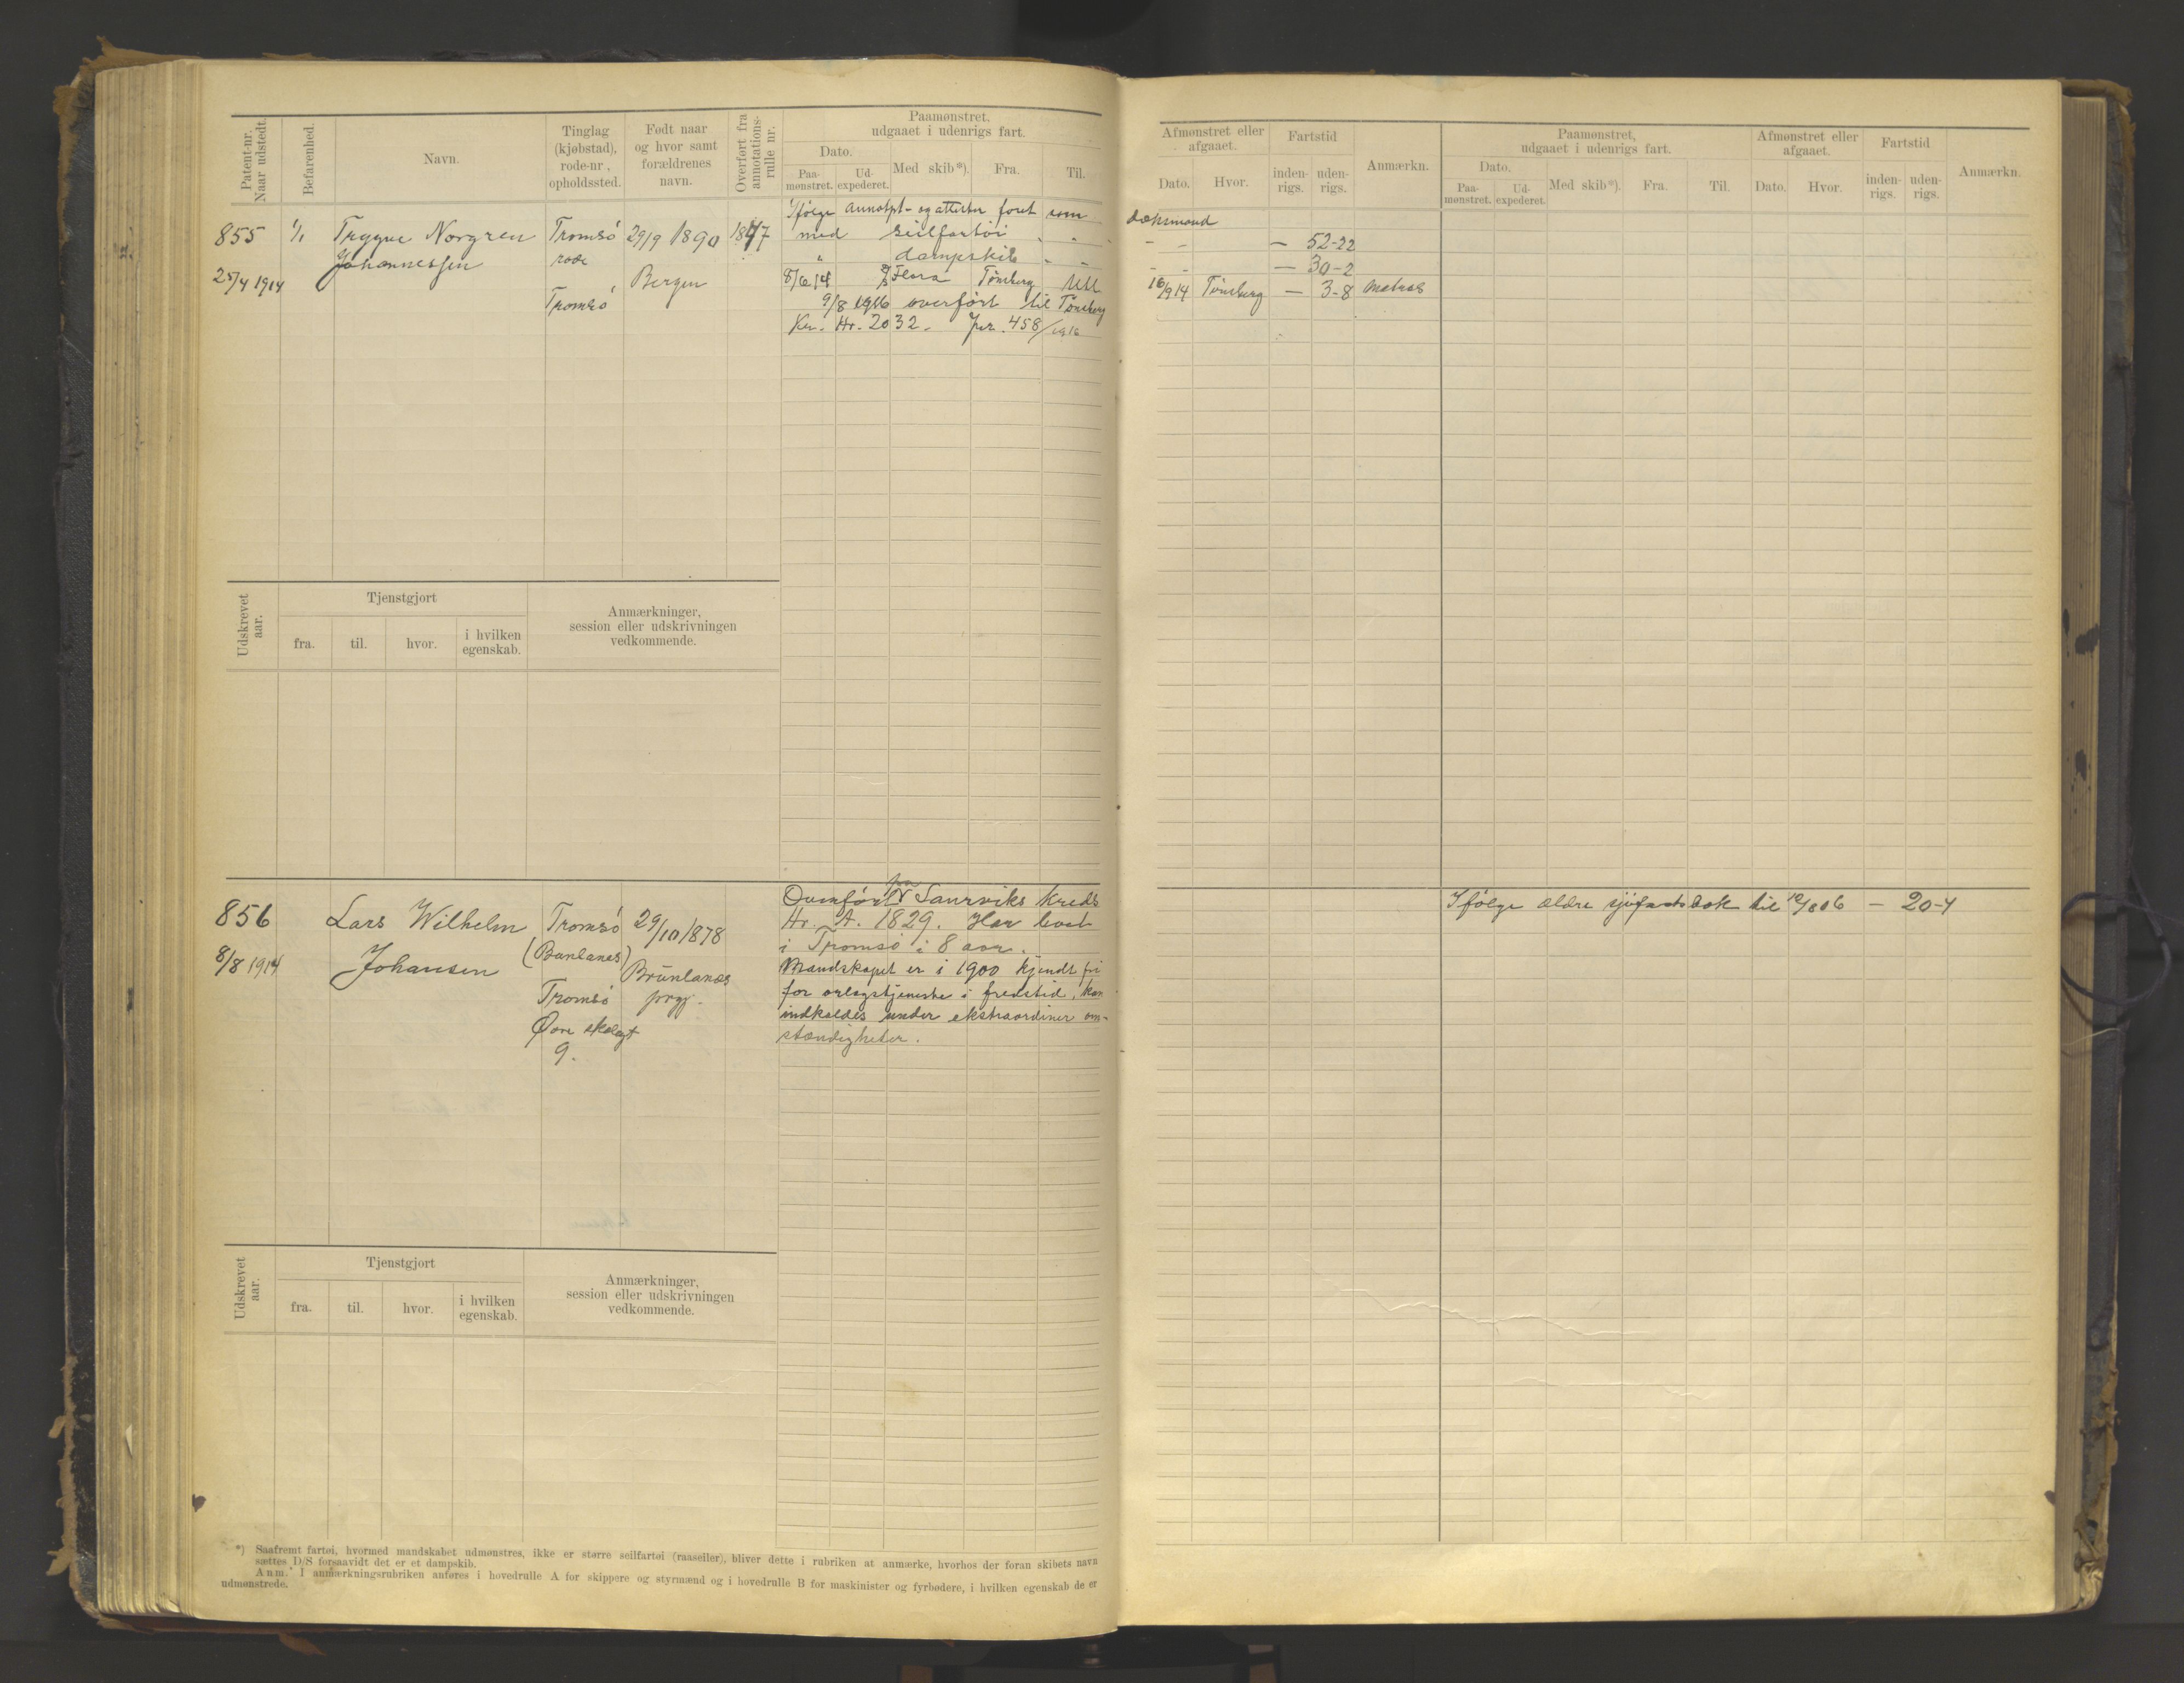 Patent-nr. Naar udstedt.
Befarenhed.
Navn.
Tinglag (kjøbstad), rode-nr., opholdssted.
Født naar og hvor samt forældrenes navn.
Overført fra annotations-rulle nr.
Paamønstret, udgaaet i udenrigs fart.
Dato.
Paa-mønstret.
Ud-expederet.
Med skib*).
Fra.
Til.
Afmønstret eller afgaaet.
Dato.
Hvor.
Fartstid
inden-rigs.
uden-rigs.
Anmærkn.
Paamønstret, udgaaet i udenrigs fart.
Dato.
Paa-mønstret.
Ud-expederet.
Med skib*).
Fra.
Til.
Afmønstret eller afgaaet.
Dato.
Hvor.
Fartstid
inden-rigs.
uden-rigs.
Anmærkn.
855
25/4 1914
1/1
Trygve Norgren
Johannessen
Tromsö
rode
Tromsö
29/9 1890
Bergen
1847
Ifølge annotpt- og attester faret som dæksmand
med seilfartöi " " - - — 52-22
" dampskib " " - - — 30-2
8/6 14 D/S Flora Tönsberg 16/9 14 Tönsberg — 3-8 Matros
9/8 1916 overført til Tönsberg
Kr. Hr. 2032. Jnr. 458/1916
Udskrevet aar.
Tjenstgjort
fra.
til.
hvor.
i hvilken egenskab.
Anmærkninger, session eller udskrivningen vedkommende.
856
8/8 1914
Lars Wilhelm
Johansen
Tromsö
Tromsö
9.
29/10 1878
Brunlanes
prgj.
Overført fra Laurviks kreds
Hr. A. 1829. Har boet
i Tromsö i 8 aar.
Mandskapet er i 1900 kjendt fri
for orlogstjeneste i fredstid, kan
indkaldes under ekstraordinær om-
stændigheter.
Ifølge ældre sjøfartsbok til 10/8 06 — 20-4
Udskrevet aar.
Tjenstgjort
fra.
til.
hvor.
i hvilken egenskab.
Anmærkninger, session eller udskrivningen vedkommende.
*) Saafremt fartøi, hvormed mandskabet udmønstres, ikke er større seilfartøi (raaseiler), bliver dette i rubriken at anmærke, hvorhos der foran skibets navn
sættes D/S forsaavidt det er et dampskib.
Anm. I anmærkningsrubriken anføres i hovedrulle A for skippere og styrmænd og i hovedrulle B for maskinister og fyrbødere, i hvilken egenskab de er
udmønstrede.